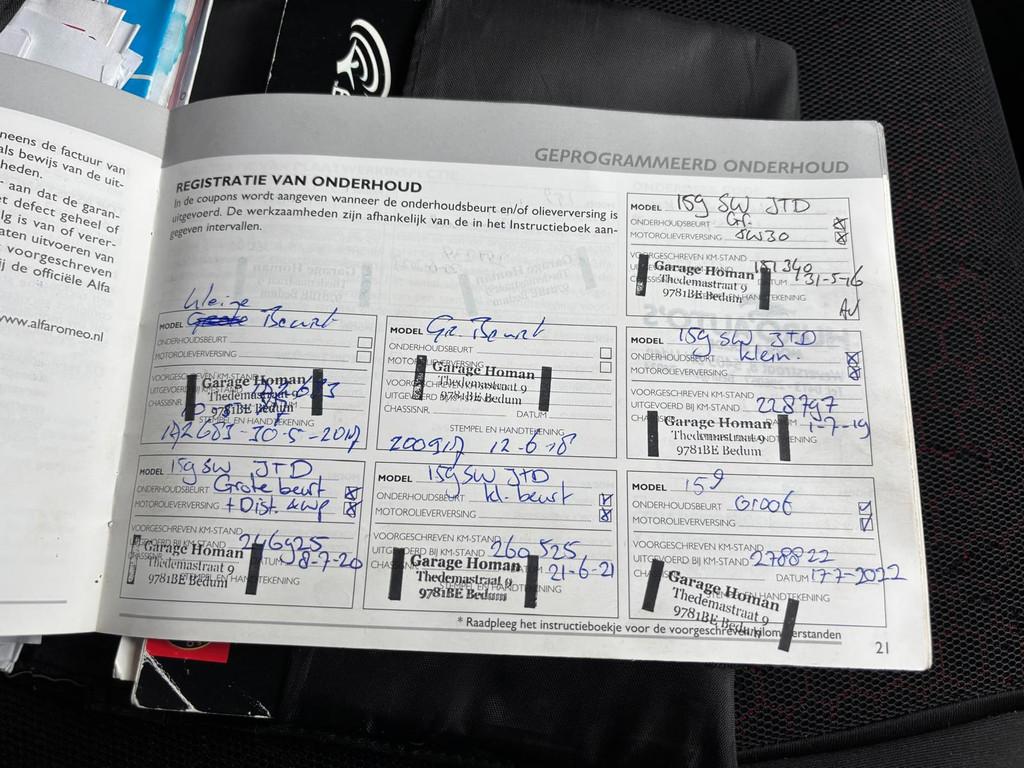 neens de factuur van
als bewijs van de uit-
heden.
aan dat de garan-
t defect geheel of
lg is van of verer-
aten uitvoeren van
voorgeschreven
j de officiële Alfa
www.alfaromeo.nl
GEPROGRAMMEERD ONDERHOUD
REGISTRATIE VAN ONDERHOUD
In de coupons wordt aangeven wanneer de onderhoudsbeurt en/of olieverversing is
uitgevoerd. De werkzaamheden zijn afhankelijk van de in het Instructieboek aan-
gegeven intervallen.
MODEL 159 SW JTD
ONDERHOUDSBEURT Gr.
MOTOROLIEVERVERSING 5W30
VOORGESCHREVEN KM-STAND
151340
DATUM 31-5-16
Garage Homan
Thedemastraat 9
9781BE Bedum
kleine
MODEL Beurt
ONDERHOUDSBEURT
MOTOROLIEVERVERSING
VOORGESCHREVEN KM-STAND
UITGEVOERD BIJ KM-STAND
CHASSISNR.
Garage Homan
Thedemastraat 9
9781BE Bedum
STEMPEL EN HANDTEKENING
172683 - 10-5-2017
MODEL Gr. Beurt
ONDERHOUDSBEURT
MOTOROLIEVERVERSING
VOORGESCHREVEN KM-STAND
UITGEVOERD BIJ KM-STAND
CHASSISNR. DATUM
Garage Homan
Thedemastraat 9
9781BE Bedum
STEMPEL EN HANDTEKENING
200917 12-6-18
MODEL 159 SW JTD
ONDERHOUDSBEURT klein.
MOTOROLIEVERVERSING
VOORGESCHREVEN KM-STAND
UITGEVOERD BIJ KM-STAND 228797
1-7-19
Garage Homan
Thedemastraat 9
9781BE Bedum
MODEL 159 SW JTD
ONDERHOUDSBEURT Grote beurt
MOTOROLIEVERVERSING + Dist. & wp
VOORGESCHREVEN KM-STAND
246925
DATUM 8-7-20
Garage Homan
Thedemastraat 9
9781BE Bedum
STEMPEL EN HANDTEKENING
MODEL 159 SW JTD
ONDERHOUDSBEURT kl. beurt
MOTOROLIEVERVERSING
VOORGESCHREVEN KM-STAND
UITGEVOERD BIJ KM-STAND 260525
21-6-21
Garage Homan
Thedemastraat 9
9781BE Bedum
STEMPEL EN HANDTEKENING
MODEL 159
ONDERHOUDSBEURT Groot
MOTOROLIEVERVERSING
VOORGESCHREVEN KM-STAND
UITGEVOERD BIJ KM-STAND 278822
DATUM 17-7-2022
Garage Homan
Thedemastraat 9
9781BE Bedum
* Raadpleeg het instructieboekje voor de voorgeschreven kilometerstanden
21